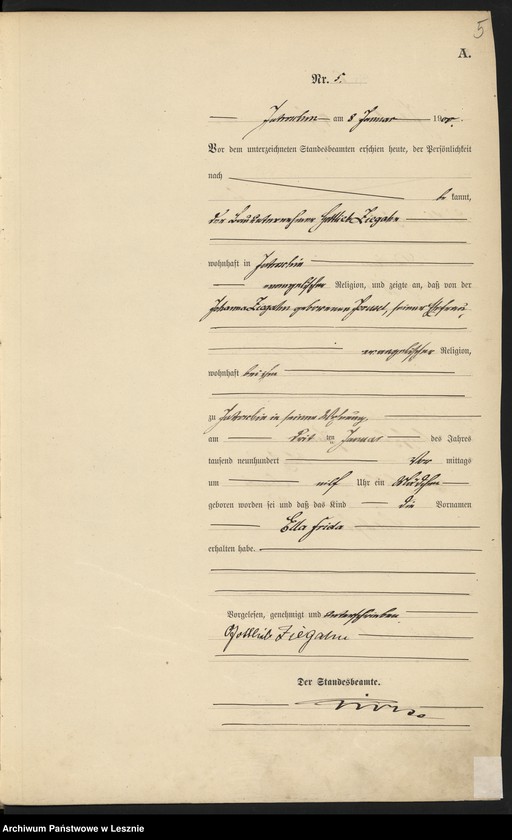 5
A.
Nr. 5.
Jutroschin am 8 Januar 1900.
Vor dem unterzeichneten Standesbeamten erschien heute, der Persönlichkeit
nach
be kannt,
der Bauunternehmer Gottlieb Ziegahn
wohnhaft in Jutroschin
evangelischer Religion, und zeigte an, daß von der
Johanna Ziegahn geborenen seiner Ehefrau,
evangelischer Religion,
wohnhaft bei ihm
zu Jutroschin in seiner Wohnung,
am ten Januar des Jahres
tausend neunhundert Vor mittags
um elf Uhr ein Mädchen
geboren worden sei und daß das Kind die Vornamen
Ella Frida
erhalten habe.
Vorgelesen, genehmigt und unterschrieben
Gottlieb Ziegahn
Der Standesbeamte.
Archiwum Państwowe w Lesznie